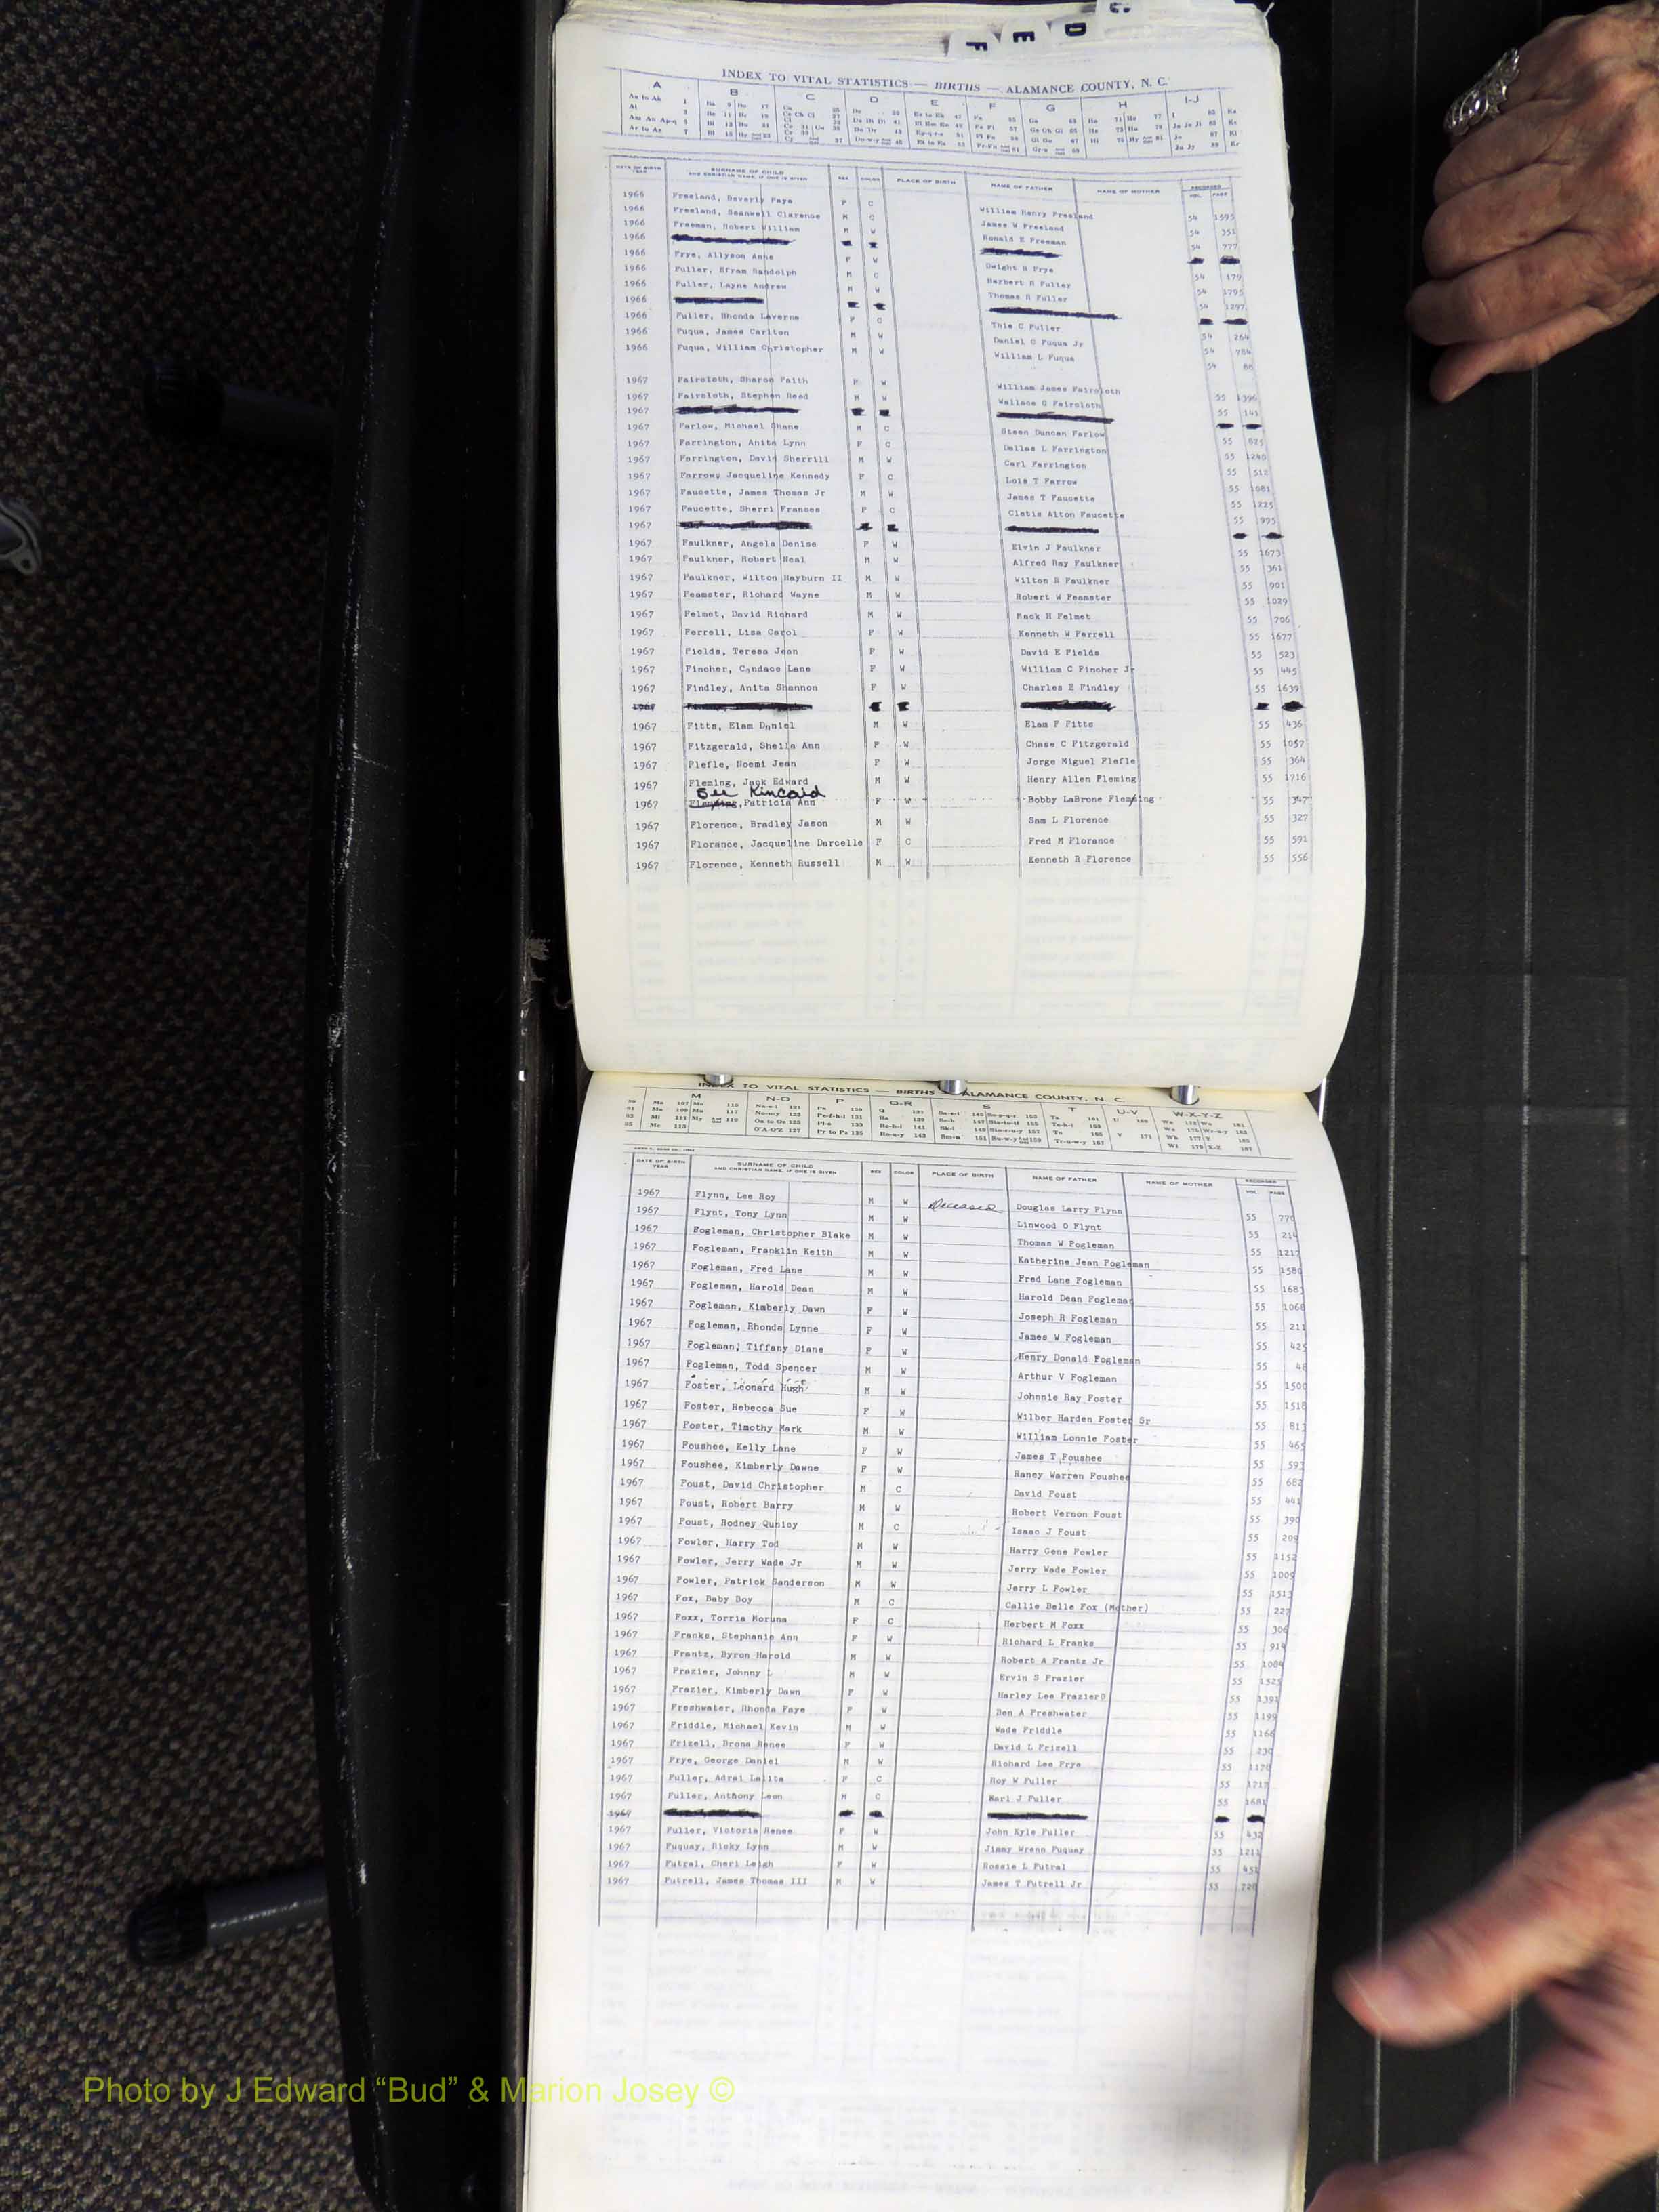 F E D
INDEX TO VITAL STATISTICS — BIRTHS — ALAMANCE COUNTY, N. C.
A B C D E F G H I-J
DATE OF BIRTH YEAR SURNAME OF CHILD AND CHRISTIAN NAME, IF ONE IS GIVEN SEX COLOR PLACE OF BIRTH NAME OF FATHER NAME OF MOTHER RECORDED VOL. PAGE
1966 Freeland, Beverly Faye F C William Henry Freeland 54 1595
1966 Freeland, Seanwell Clarence M C James W Freeland 54 351
1966 Freeman, Robert William M W Ronald E Freeman 54 777
1966
1966 Frye, Allyson Anne F W Dwight R Frye 54 179
1966 Fuller, Efram Randolph M C Herbert R Fuller 54 1795
1966 Fuller, Layne Andrew M W Thomas R Fuller 54 1297
1966
1966 Fuller, Rhonda Laverne F C This C Fuller 54 264
1966 Fuqua, James Carlton M W Daniel C Fuqua Jr 54 784
1966 Fuqua, William Christopher M W William L Fuqua 54 88
1967 Faircloth, Sharon Faith F W William James Faircloth 55 1396
1967 Faircloth, Stephen Reed M W Wallace G Faircloth 55 141
1967
1967 Farlow, Michael Shane M C Steen Duncan Farlow 55 825
1967 Farrington, Anita Lynn F C Dallas L Farrington 55 1240
1967 Farrington, David Sherrill M W Carl Farrington 55 512
1967 Farrow, Jacqueline Kennedy F C Lois T Farrow 55 1081
1967 Faucette, James Thomas Jr M W James T Faucette 55 1225
1967 Faucette, Sherri Frances F C Cletis Alton Faucette 55 995
1967
1967 Faulkner, Angela Denise F W Elvin J Faulkner 55 1673
1967 Faulkner, Robert Neal M W Alfred Ray Faulkner 55 361
1967 Faulkner, Wilton Rayburn II M W Wilton R Faulkner 55 901
1967 Feamster, Richard Wayne M W Robert W Feamster 55 1029
1967 Felmet, David Richard M W Mack H Felmet 55 706
1967 Ferrell, Lisa Carol F W Kenneth W Ferrell 55 1677
1967 Fields, Teresa Jean F W David E Fields 55 523
1967 Fincher, Candace Lane F W William C Fincher Jr 55 445
1967 Findley, Anita Shannon F W Charles E Findley 55 1639
1967 Fitts, Elam Daniel M W Elam F Fitts 55 436
1967 Fitzgerald, Sheila Ann F W Chase C Fitzgerald 55 1057
1967 Flefle, Noemi Jean F W Jorge Miguel Flefle 55 364
1967 Fleming, Jack Edward M W Henry Allen Fleming 55 1716
See Kincaid
1967 Fleming, Patricia Ann F W Bobby LaBrone Fleming 55 347
1967 Florence, Bradley Jason M W Sam L Florence 55 327
1967 Florance, Jacqueline Darcelle F C Fred M Florance 55 591
1967 Florence, Kenneth Russell M W Kenneth R Florence 55 556
INDEX TO VITAL STATISTICS — BIRTHS — ALAMANCE COUNTY, N. C.
M N-O P Q-R S T U-V W-X-Y-Z
DATE OF BIRTH YEAR SURNAME OF CHILD AND CHRISTIAN NAME, IF ONE IS GIVEN SEX COLOR PLACE OF BIRTH NAME OF FATHER NAME OF MOTHER RECORDED VOL. PAGE
1967 Flynn, Lee Roy M W Deceased Douglas Larry Flynn 55 770
1967 Flynt, Tony Lynn M W Linwood O Flynt 55 214
1967 Fogleman, Christopher Blake M W Thomas W Fogleman 55 1217
1967 Fogleman, Franklin Keith M W Katherine Jean Fogleman 55 1580
1967 Fogleman, Fred Lane M W Fred Lane Fogleman 55 1687
1967 Fogleman, Harold Dean M W Harold Dean Fogleman 55 1068
1967 Fogleman, Kimberly Dawn F W Joseph R Fogleman 55 211
1967 Fogleman, Rhonda Lynne F W James W Fogleman 55 425
1967 Fogleman, Tiffany Diane F W Henry Donald Fogleman 55 48
1967 Fogleman, Todd Spencer M W Arthur V Fogleman 55 1500
1967 Foster, Leonard Hugh M W Johnnie Ray Foster 55 1518
1967 Foster, Rebecca Sue F W Wilber Harden Foster Sr 55 813
1967 Foster, Timothy Mark M W William Lonnie Foster 55 465
1967 Foushee, Kelly Lane F W James T Foushee 55 593
1967 Foushee, Kimberly Dawne F W Raney Warren Foushee 55 682
1967 Foust, David Christopher M C David Foust 55 441
1967 Foust, Robert Barry M W Robert Vernon Foust 55 390
1967 Foust, Rodney Qunioy M C Isaac J Foust 55 209
1967 Fowler, Harry Tod M W Harry Gene Fowler 55 1152
1967 Fowler, Jerry Wade Jr M W Jerry Wade Fowler 55 1009
1967 Fowler, Patrick Sanderson M W Jerry L Fowler 55 1513
1967 Fox, Baby Boy M C Callie Belle Fox (Mother) 55 227
1967 Foxx, Torria Moruna F C Herbert M Foxx 55 306
1967 Franks, Stephanie Ann F W Richard L Franks 55 914
1967 Frantz, Byron Harold M W Robert A Frantz Jr 55 1084
1967 Frazier, Johnny L M W Ervin S Frazier 55 1525
1967 Frazier, Kimberly Dawn F W Harley Lee FrazierO 55 1391
1967 Freshwater, Rhonda Faye F W Ben A Freshwater 55 1199
1967 Friddle, Michael Kevin M W Wade Friddle 55 1166
1967 Frizell, Brona Renee F W David L Frizell 55 230
1967 Frye, George Daniel M W Richard Lee Frye 55 1178
1967 Fuller, Adral Lalita F C Roy W Fuller 55 1717
1967 Fuller, Anthony Leon M C Earl J Fuller 55 1681
1967
1967 Fuller, Victoria Renee F W John Kyle Fuller 55 432
1967 Fuquay, Ricky Lynn M W Jimmy Wrenn Fuquay 55 1211
1967 Futral, Cheri Leigh F W Rossie L Futral 55 451
1967 Futrell, James Thomas III M W James T Futrell Jr 55 728
Photo by J Edward “Bud” & Marion Josey ©